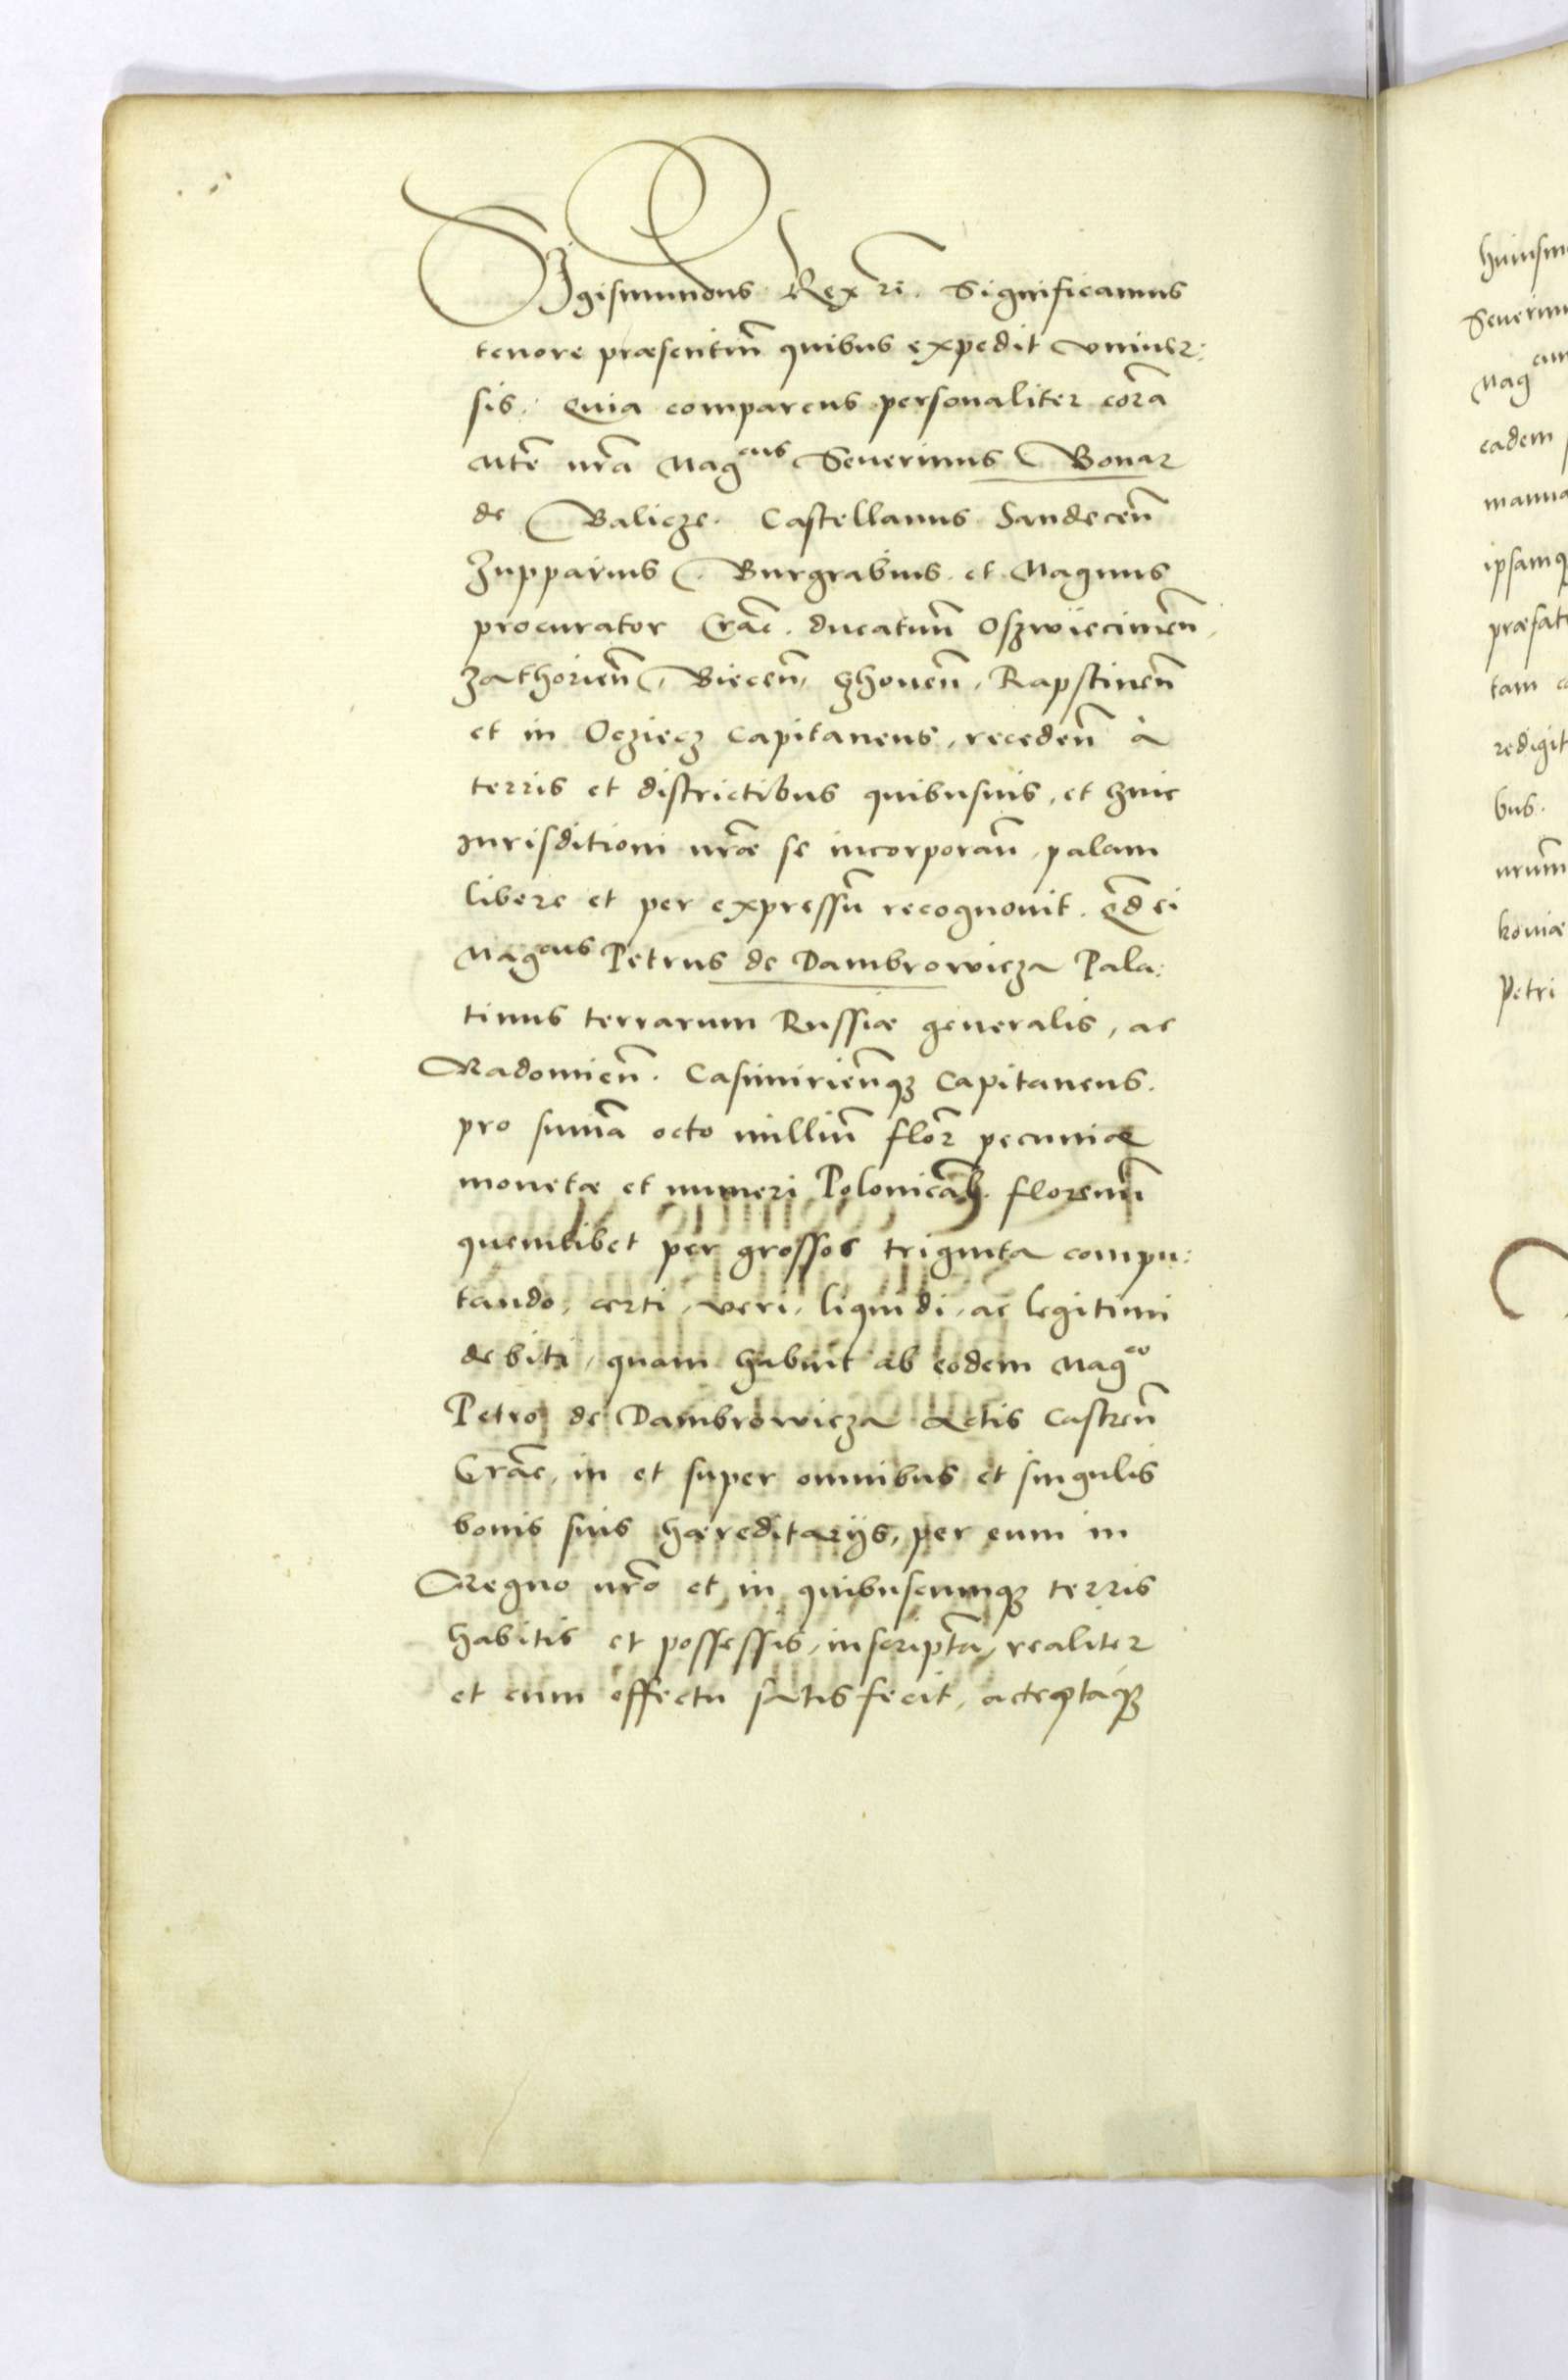 Sigismundus Rex rē. Significamus
tenore præsentiū quibus expedit vniuer:
sis. Quia comparens personaliter corā
Mte nrā Magcus Seuerinus Bonar
de Balicze. Castellanus Sandecen̄
Zupparius, Burgrabius et Magnus
procurator Crac̄. ducatuū Oszwiecimen̄,
Zathorien̄, Biecen̄, Czhouen̄, Rapstinen̄
et in Ocziecz Capitaneus, receden̄ à
terris et districtibus quibusuis, et huic
Iurisditioni nræ se incorporan̄, palam
libere et per expressū recognouit. Qd ei
Magcus Petrus de Dambrowicza Pala:
tinus terrarum Russiæ generalis, ac
Radomien̄. Casimirienq̄ʒ Capitaneus.
pro sum̄a octo milliū flor̄ pecuniæ
monetæ et numeri Polonicalʒ. florenū
quemlibet per grossos triginta compu:
tando, certi, veri, liquidi, ac legitimi
debiti, quam habuit ab eodem Magco
Petro de Dambrowicza Actis Castren̄
Crac̄, in et super omnibus et singulis
bonis suis hæreditarijs, per eum in
Regno nrō et in quibuscunqʒ terris
habitis et possessis, inscriptā, realiter
et cum effectu satisfecit, acteptaqʒ
huiusm
Seuerinu
Mag cum
eadem
manua
ipsamq
præfat
tam
redigit
bus.
nrūm
koniæ
Petri